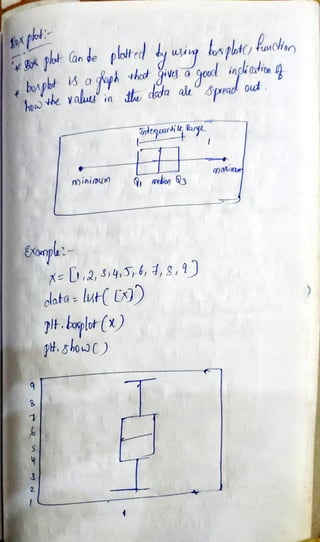 Box plot:-
* Box plot Can be plotted by using boxplot() function
* boxplot is a graph that gives a good indication of
how the values in the data are spread out.
Interquartile Range
minimum Q1 median Q3 maximum
Example:-
x = [1,2,3,4,5,6,7,8,9]
data = list([x])
plt.boxplot(x)
plt.show()
9
8
7
6
5
4
3
2
1
1